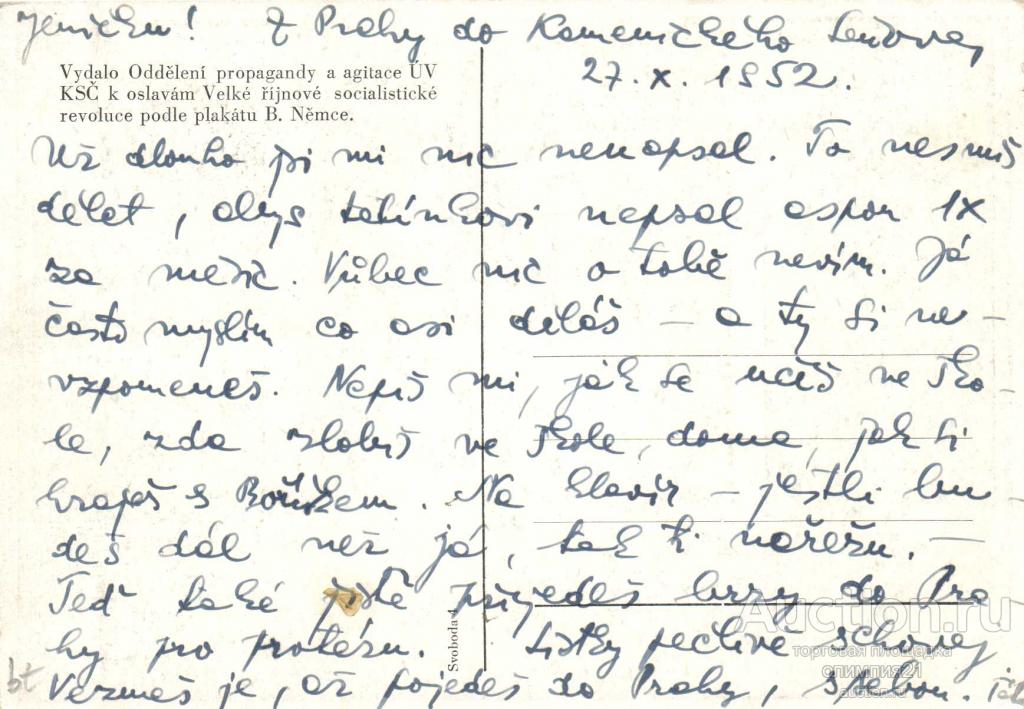 Jeníčku! Z Prahy do Kamenického Šenova
27.X.1952.
Vydalo Oddělení propagandy a agitace ÚV
KSČ k oslavám Velké říjnové socialistické
revoluce podle plakátu B. Němce.
Už dlouho jsi mi nic nenapsal. To nesmíš
dělat, abys tatínkovi nepsal aspoň 1x
za měsíc. Vůbec nic o tobě nevím. Já
často myslím co asi děláš – a ty si ne-
vzpomeneš. Napiš mi, jak se učíš ve ško-
le, zda zlobíš ve škole, doma, jak si
hraješ s . Na klavír – jestli bu-
deš dál než já, tak ti nařežu. –
Teď také jistě přijedeš brzy do Pra-
hy pro protézu. Lístky pečlivě schovej
Vezmeš je, až pojedeš do Prahy, s sebou.
Svoboda 4
bt
Auction.ru
торговая площадка
олимпия21
auction.ru